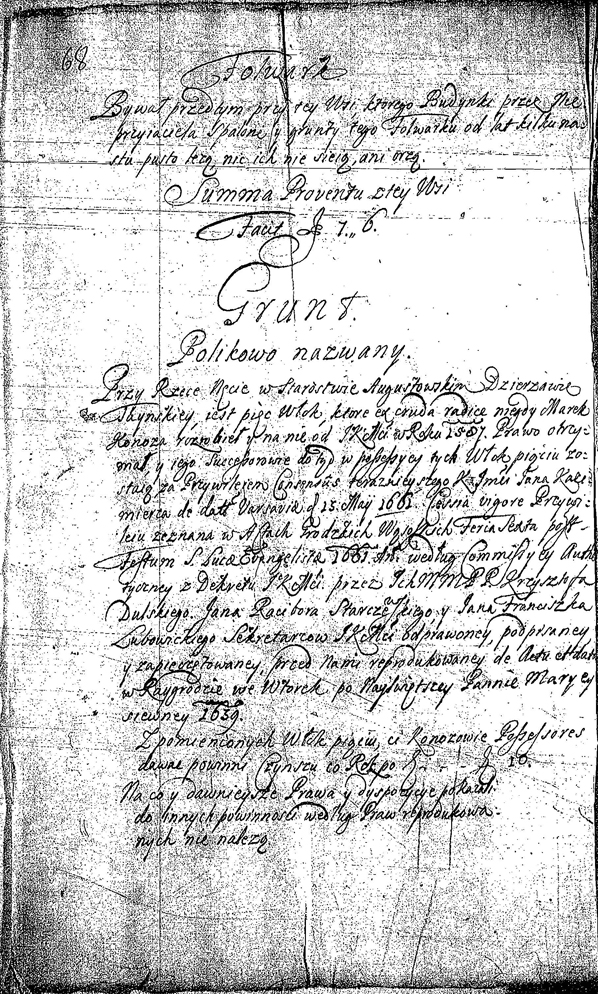 68
Folwark
Bywał przedtym przy tey Wsi, ktorego Budynki przez Nie-
przyiaciela Spalone y grunty tego Folwarku od lat kilkuna-
stu pusto lezą, nic ich nie sieią, ani orzą.
Summa Proventu z tey Wsi
Facit 7.. 6.
Grunt.
Polikowo nazwany.
Przy Rzece Nęcie w Starostwie Augustowskim Dzierzawie
jest pięc Włok ktore ex cruda radice niegdy Marek
Konoza rozrobieł y na nie od JKMci w Roku Prawo otrzy-
mał, y jego Successorowie do tąd w possessyey tych Włok pięciu zo-
staią za Przywilejem Consensus teraznieyszego K JMci Jana Kazi-
mierza de datt Varsaviæ d 13 Maij 1661. Cessia vigore Przywi-
leiu zeznana w Aktach Grodzkich Wąsoskich Feria Sexta post
Festum S. Lucæ Evangelistæ 1661. według Commissyey Auten-
tyczney z Dekretu JKMci przez Ich MM PP Krzysztofa
Dulskiego, Jana Racibora y Jana Franciszka
Lubowickiego Sekretarzow JKMci odprawoney, podpisaney
y zapieczętowaney, przed Nami reprodukowaney de Actu et datt
w Raygrodzie we Wtorek po Nayświętszey Pannie Maryey
siewney 1639.
Z pomienionych Włok pięciu, ci Konozowie Possessores
dawać powinni Czynszu co Rok po 10.
Na co y dawnieysze Prawa y dyspozycye pokazali
do innych powinnosci według Praw reprodukowa-
nych nie nalezą.